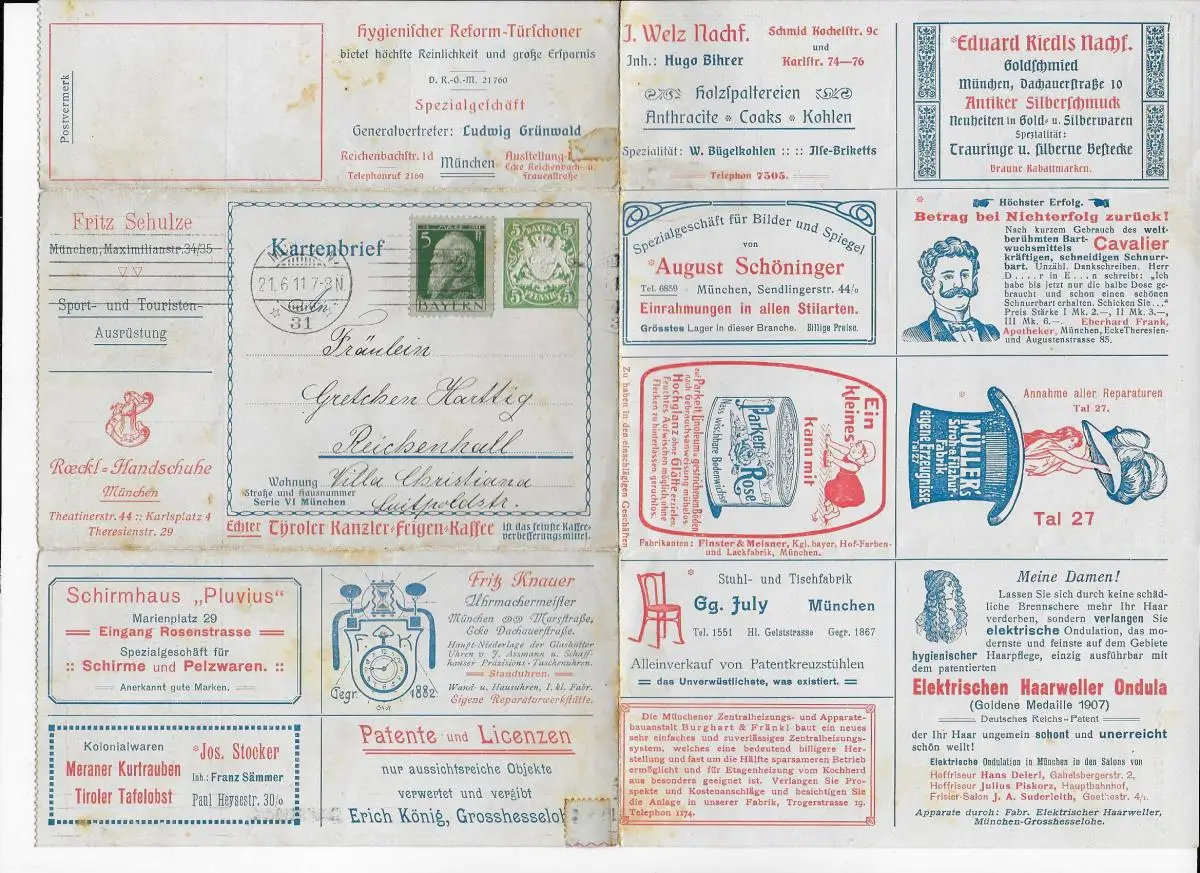 Postvermerk
Hygienischer Reform-Türschoner
bietet höchste Reinlichkeit und große Ersparnis
D. R.-G.-M. 21760
Spezialgeschäft
Generalvertreter: Ludwig Grünwald
Reichenbachstr. 1d
Telephonruf 2169
München
Ausstellung
Ecke Reichenbach- u.
Frauenstraße
J. Welz Nachf.
Inh.: Hugo Bihrer
Schmid Kochelstr. 9c
und
Karlstr. 74—76
Holzspaltereien
Anthracite * Coaks * Kohlen
Spezialität: W. Bügelkohlen :: :: Ilse-Briketts
Telephon 7505.
*Eduard Riedls Nachf.
Goldschmied
München, Dachauerstraße 10
Antiker Silberschmuck
Neuheiten in Gold- u. Silberwaren
Spezialität:
Trauringe u. silberne Bestecke
Braune Rabattmarken.
Fritz Schulze
München, Maximilianstr. 34/35
Sport- und Touristen-
Ausrüstung
Rœckl-Handschuhe
München
Theatinerstr. 44 :: Karlsplatz 4
Theresienstr. 29
Kartenbrief
21.6.11.7-8N
31
5 Pf
BAYERN
BAYERN
5 5
PFENNIG
Fräulein
Gretchen Harttig
Reichenhall
Wohnung Villa Christiana
Straße und Hausnummer Luitpoldstr.
Serie VI München
Echter Tyroler Kanzler-Feigen-Kaffee ist das feinste Kaffee-
verbesserungsmittel.
Spezialgeschäft für Bilder und Spiegel
von
*August Schöninger
Tel. 6859 München, Sendlingerstr. 44/0
Einrahmungen in allen Stilarten.
Grösstes Lager in dieser Branche. Billige Preise.
Höchster Erfolg.
Betrag bei Nichterfolg zurück!
Nach kurzem Gebrauch des welt-
berühmten Bart-
wuchsmittels Cavalier
kräftigen, schneidigen Schnurr-
bart. Unzähl. Dankschreiben. Herr
D.... r in E... n schreibt: „Ich
habe bis jetzt nur die halbe Dose ge-
braucht und schon einen schönen
Schnurrbart erhalten. Schicken Sie..."
Preis Stärke I Mk. 2.—, II Mk. 3.—,
III Mk. 6.—. Eberhard Frank,
Apotheker, München, Ecke Theresien-
und Augustenstrasse 85.
Zu haben in den einschlägigen Geschäften
Ein
kleines
kann mit
Parkett Rose
Nass wischbare Bodenwichse
auf Parkett Linoleum u. gestrichenem Boden
nach Gebrauchsanweisung mühelos
Hochglanz ohne Glätte erzielen.
Feuchtes Aufwischen möglich ohne
Flecken zu hinterlassen. geruchlos.
Fabrikanten: Finster & Meisner, Kgl. bayer. Hof-Farben-
und Lackfabrik, München.
Annahme aller Reparaturen
Tal 27.
MÜLLER's
Stroh- & Filzhut-
Fabrik
eigene Erzeugnisse
Tal 27
Schirmhaus „Pluvius"
Marienplatz 29
Eingang Rosenstrasse
Spezialgeschäft für
:: Schirme und Pelzwaren. ::
Anerkannt gute Marken.
Gegr. 1882
Fritz Knauer
Uhrmachermeister
München Marsstraße,
Ecke Dachauerstraße.
Haupt-Niederlage der Glashütter
Uhren v. J. Assmann u. Schaff-
hauser Präzisions-Taschenuhren.
Standuhren.
Wand- u. Hausuhren, I. kl. Fabr.
Eigene Reparaturwerkstätte.
* Stuhl- und Tischfabrik
Gg. July München
Tel. 1551 Hl. Geiststrasse Gegr. 1867
Alleinverkauf von Patentkreuzstühlen
das Unverwüstlichste, was existiert.
Meine Damen!
Lassen Sie sich durch keine schäd-
liche Brennschere mehr Ihr Haar
verderben, sondern verlangen Sie
elektrische Ondulation, das mo-
dernste und feinste auf dem Gebiete
hygienischer Haarpflege, einzig ausführbar mit
dem patentierten
Elektrischen Haarweller Ondula
(Goldene Medaille 1907)
Deutsches Reichs-Patent
der Ihr Haar ungemein schont und unerreicht
schön wellt!
Elektrische Ondulation in München in den Salons von
Hoffriseur Hans Deierl, Gabelsbergerstr. 2,
Hoffriseur Julius Piskorz, Hauptbahnhof,
Frisier-Salon J. A. Suderleith, Goethestr. 4/1.
Apparate durch: Fabr. Elektrischer Haarweller,
München-Grosshesselohe.
Kolonialwaren
Meraner Kurtrauben
Tiroler Tafelobst
*Jos. Stocker
Inh.: Franz Sämmer
Paul Heysestr. 30/0
Patente und Licenzen
nur aussichtsreiche Objekte
verwertet und vergibt
Erich König, Grosshesselohe
Die Münchener Zentralheizungs- und Apparate-
bauanstalt Burghart & Fränkl baut ein neues
sehr einfaches und zuverlässiges Zentralheizungs-
system, welches eine bedeutend billigere Her-
stellung und fast um die Hälfte sparsameren Betrieb
ermöglicht und für Etagenheizung vom Kochherd
aus besonders geeignet ist. Verlangen Sie Pro-
spekte und Kostenanschläge und besichtigen Sie
die Anlage in unserer Fabrik, Trogerstrasse 19.
Telephon 1174.